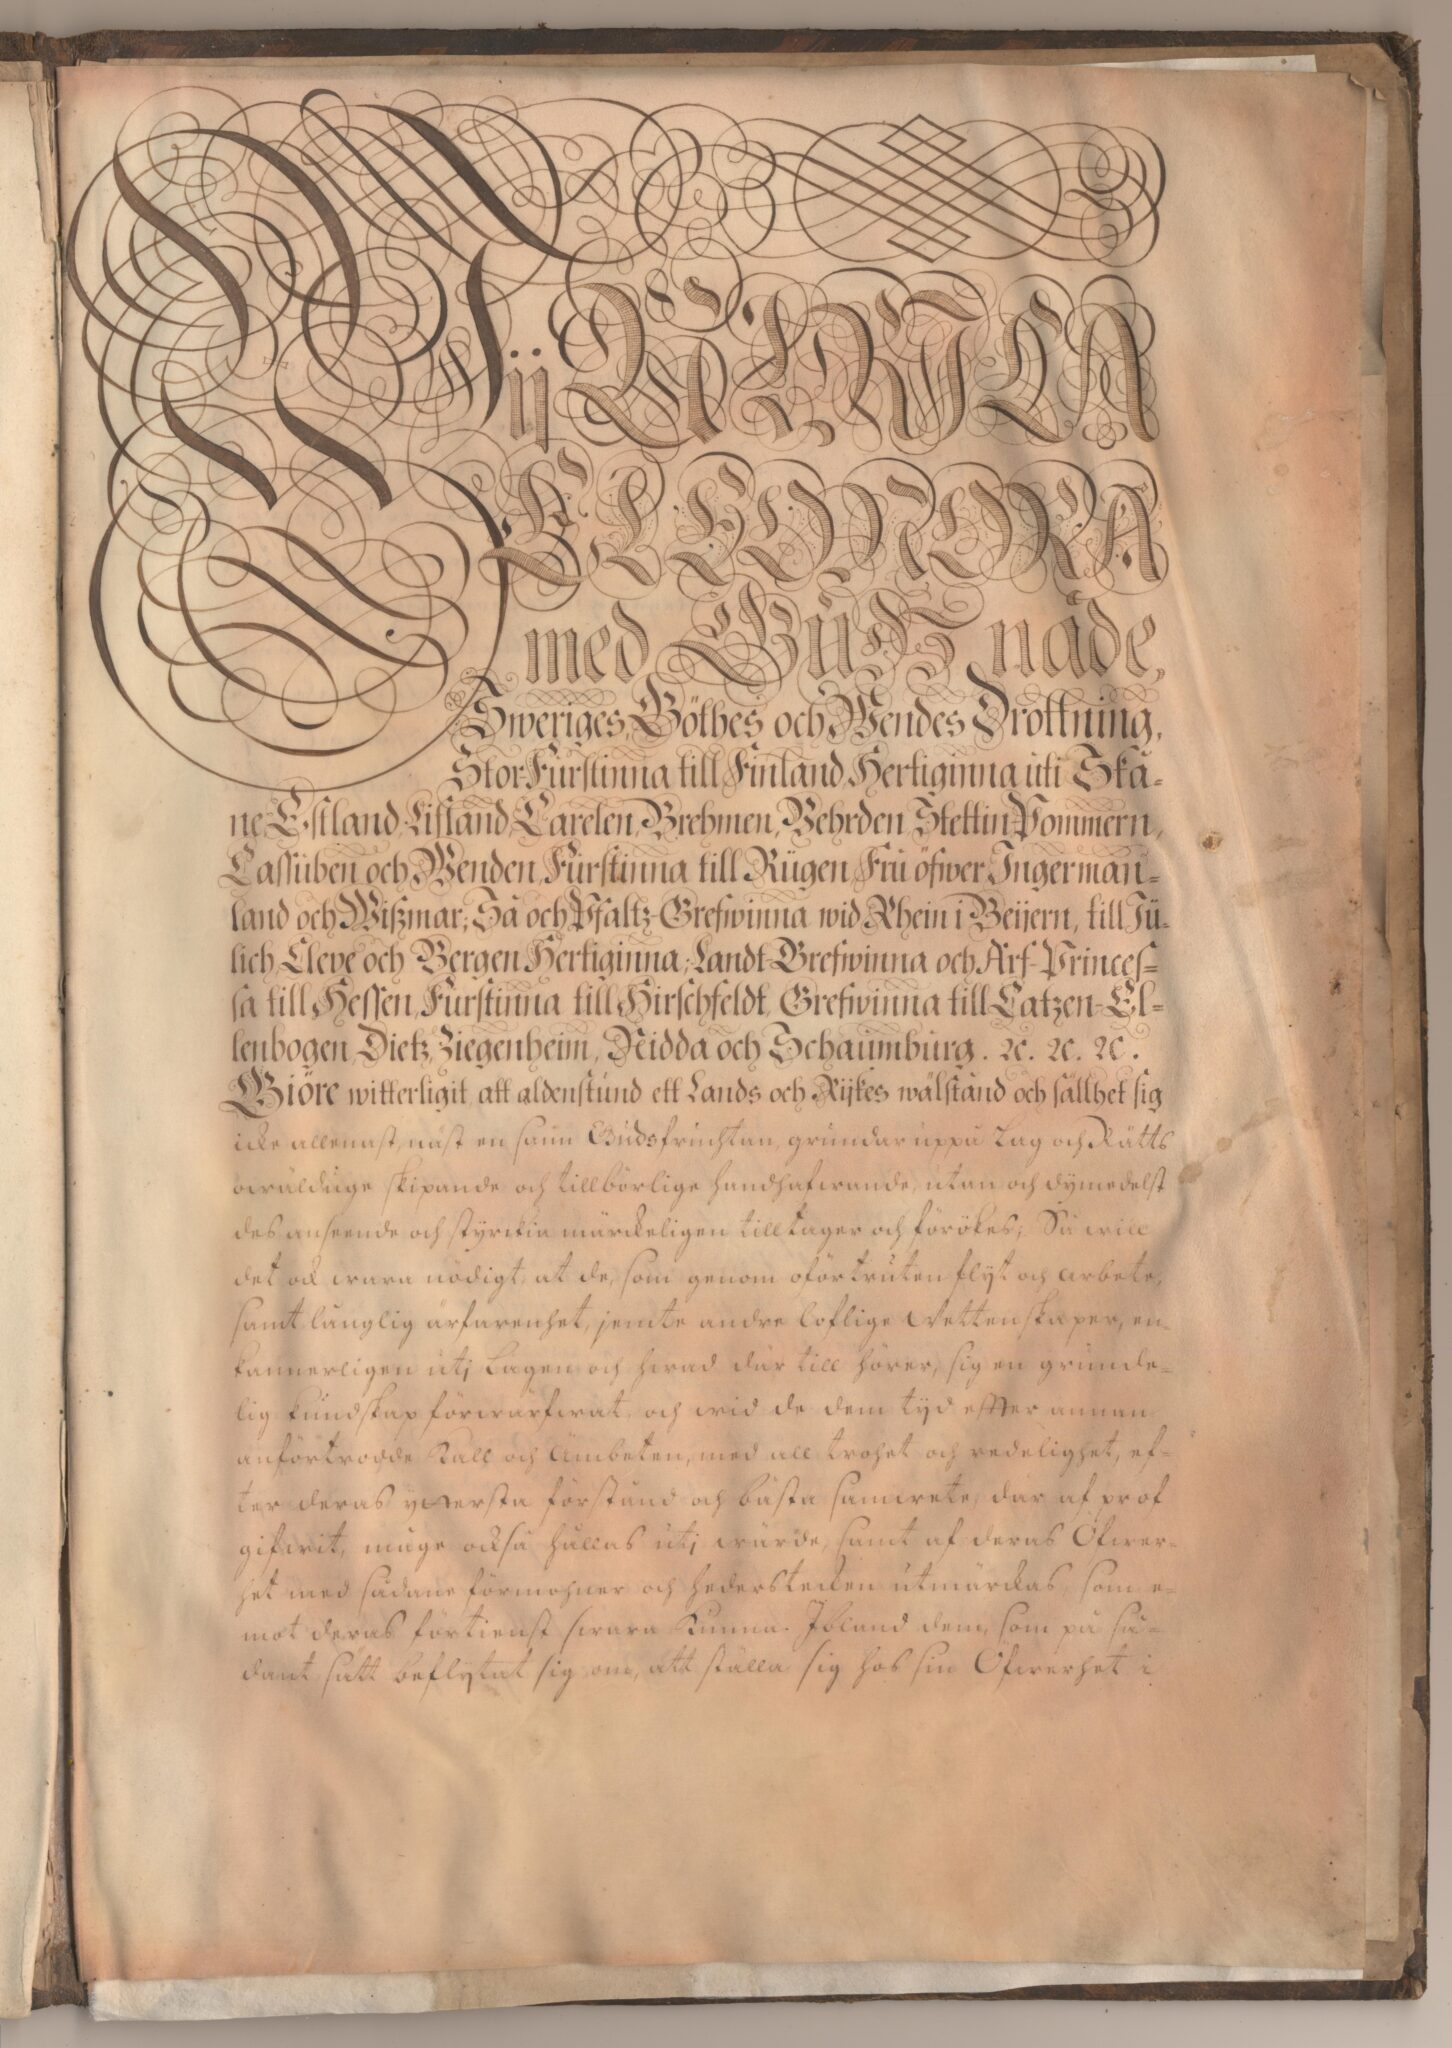 Wij ULRICA
ELEONORA
med Gudz nåde,
Sweriges, Göthes och Wendes Drottning,
Stor-Furstinna till Finland, Hertiginna uti Skå-
ne, Estland, Lifland, Carelen, Brehmen, Vehrden, Stettin-Pommern,
Cassuben och Wenden, Furstinna till Rügen, Fru öfwer Ingerman-
land och Wißmar; Så och Pfaltz-Grefwinna wid Rhein i Beijern, till Jü-
lich, Cleve och Bergen Hertiginna; Landt-Grefwinna och Arf-Princes-
sa till Hessen, Furstinna till Hirschfeldt, Grefwinna till Catzen-El-
lenbogen, Dietz, Ziegenheim, Nidda och Schaumburg. ꝛc. ꝛc. ꝛc.
Giöre witterligit, att aldenstund ett Lands och Rijkes wälstånd och sällhet sig
icke allenast, näst en sann Gudsfruchtan, grundar uppå Lag och Rätts
owälduge skipande och tillbörlige handhafwande, utan och dymedelst
des anseende och styrckia märckeligen till tager och förökes; Så will
det ock wara nödigt, at de, som genom oförtruten flyt och arbete,
samt långlig ärfarenhet, jemte andre loflige Wettenskaper, en-
kannerligen utj Lagen och hwad där till hörer, sig en grunde-
lig kundskap förwärfwat, och wid de dem tyd effter annan
anförtrodde Kall och Ämbeten, med all trohet och redelighet, ef-
ter deras yttersta förstånd och bästa samwete, dar af prof
gifwit, måge också hållas utj wärde, samt af deras Öfwer-
het med sådane förmohner och hederstecken utmärckas, som e-
mot deras förtienst swara kunna. Ibland dem, som på så-
dant sätt beflytat sig om, att ställa sig hos sin Öfwerhet i